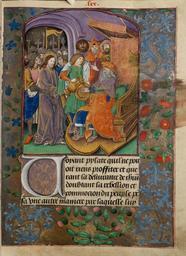 Voyant pylate quil ne pou
oit riens proffiter et que
rant la deliurance de ihu
doubtant la rebellion et
commocion du peuple pe
sa vne autre maniere par laquelle